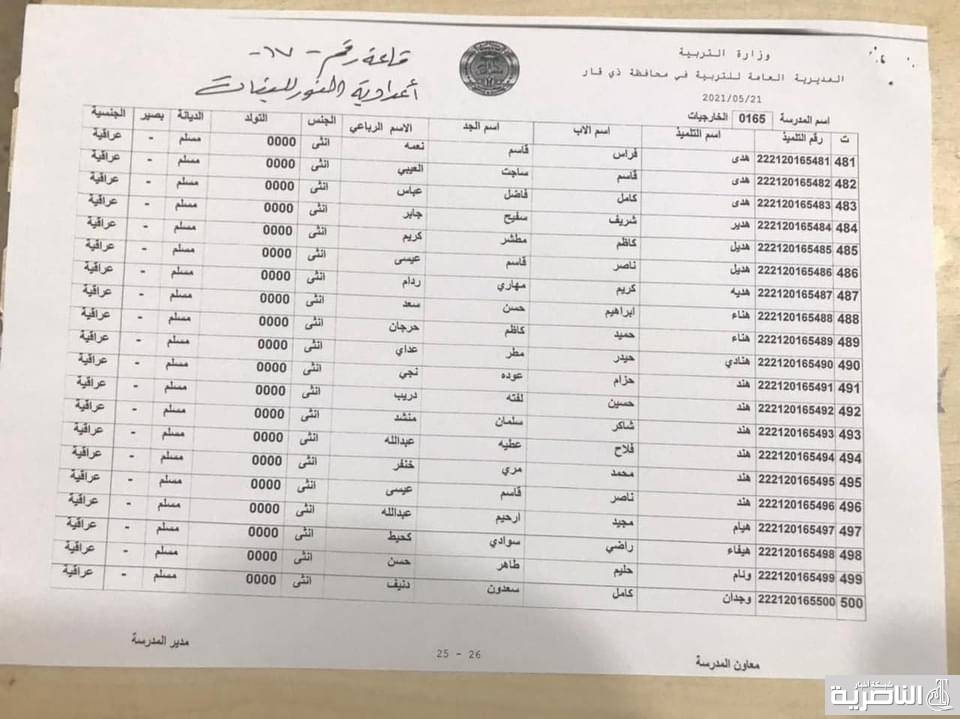 وزارة التربية
المديرية العامة للتربية في محافظة ذي قار
2021/05/21
قاعة رقم - ١٧ -
أعدادية النور للبنات
اسم المدرسة 0165 الخارجيات
ت رقم التلميذ اسم التلميذ اسم الاب اسم الجد الاسم الرباعي الجنس التولد الديانة بصير الجنسية
481 222120165481 هدى فراس قاسم نعمه انثى 0000 مسلم - عراقية
482 222120165482 هدى قاسم ساجت العيبي انثى 0000 مسلم - عراقية
483 222120165483 هدى كامل فاضل عباس انثى 0000 مسلم - عراقية
484 222120165484 هدير شريف سفيح جابر انثى 0000 مسلم - عراقية
485 222120165485 هديل كاظم مطشر كريم انثى 0000 مسلم - عراقية
486 222120165486 هديل ناصر قاسم عيسى انثى 0000 مسلم - عراقية
487 222120165487 هديه كريم مهاري ردام انثى 0000 مسلم - عراقية
488 222120165488 هناء ابراهيم حسن سعد انثى 0000 مسلم - عراقية
489 222120165489 هناء حميد كاظم حرجان انثى 0000 مسلم - عراقية
490 222120165490 هنادي حيدر مطر عداي انثى 0000 مسلم - عراقية
491 222120165491 هند حزام عوده نجي انثى 0000 مسلم - عراقية
492 222120165492 هند حسين لفته دريب انثى 0000 مسلم - عراقية
493 222120165493 هند شاكر سلمان منشد انثى 0000 مسلم - عراقية
494 222120165494 هند فلاح عطيه عبدالله انثى 0000 مسلم - عراقية
495 222120165495 هند محمد مري خنفر انثى 0000 مسلم - عراقية
496 222120165496 هند ناصر قاسم عيسى انثى 0000 مسلم - عراقية
497 222120165497 هيام مجيد ارحيم عبدالله انثى 0000 مسلم - عراقية
498 222120165498 هيفاء راضي سوادي كحيط انثى 0000 مسلم - عراقية
499 222120165499 ونام حليم طاهر حسن انثى 0000 مسلم - عراقية
500 222120165500 وجدان كامل سعدون دنيف انثى 0000 مسلم - عراقية
معاون المدرسة 25 - 26 مدير المدرسة
شبكة أخبار
الناصرية